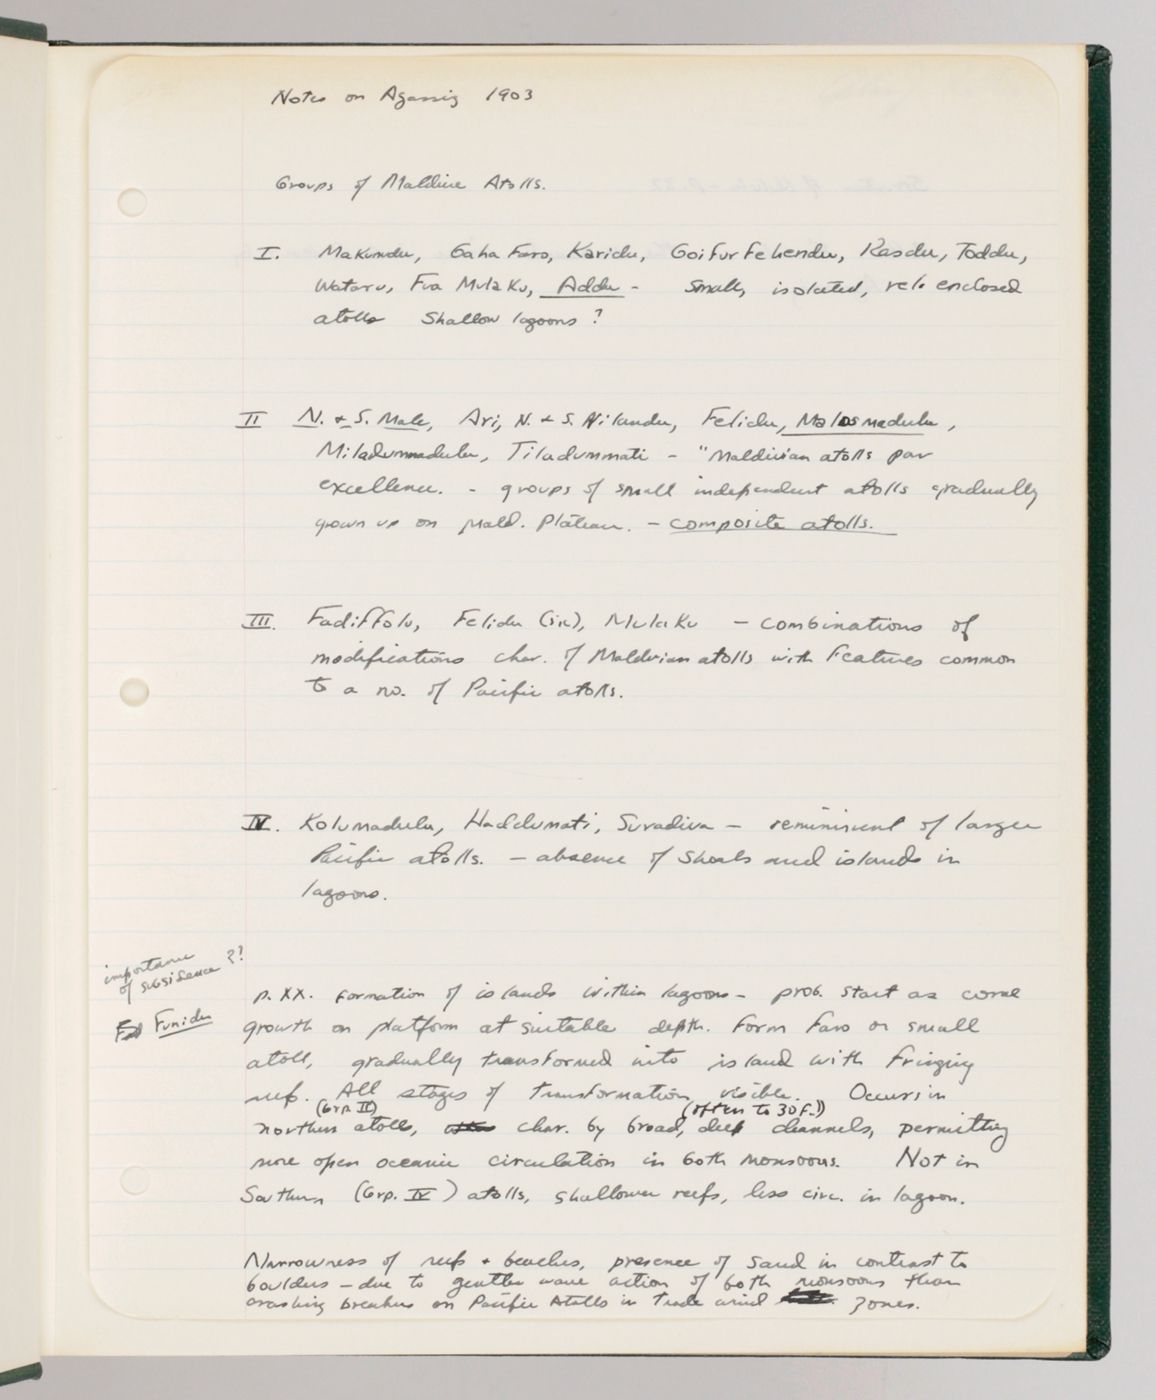 Notes on Agassiz 1903
Groups of Maldive Atolls.
I. Makunudu, Gaha Faro, Karidu, Goifurfehendu, Rasdu, Toddu,
Wataru, Fua Mulaku, Addu - small, isolated, rel. enclosed
atolls shallow lagoons ?
II N. + S. Male, Ari, N. + S. Nilandu, Felidu, Malosmadulu,
Miladummadulu, Tiladummati - "Maldivian atolls par
excellence. - groups of small independent atolls gradually
grown up on Mald. Plateau. - composite atolls.
III. Fadiffolu, Felidu (sic), Mulaku - combinations of
modifications char. of Maldivian atolls with features common
to a no. of Pacific atolls.
IV. Kolumadulu, Haddumati, Suvadiva - reminiscent of larger
Pacific atolls. - absence of shoals and islands in
lagoons.
importance
of subsidence ??
Funidu
p. XX. Formation of islands within lagoons - prob. start as coral
growth on platform at suitable depth. Form faro or small
atoll, gradually transformed into island with fringing
reef. All stages of transformation visible. Occurs in
(Grp. II) (often to 30 F.)
northern atolls, char. by broad, deep channels, permitting
more open oceanic circulation in both monsoons. Not in
Southern (Grp. IV) atolls, shallower reefs, less circ. in lagoon.
Narrowness of reefs + beaches, presence of sand in contrast to
boulders - due to gentler wave action of both monsoons than
crashing breakers on Pacific Atolls in Trade wind zones.